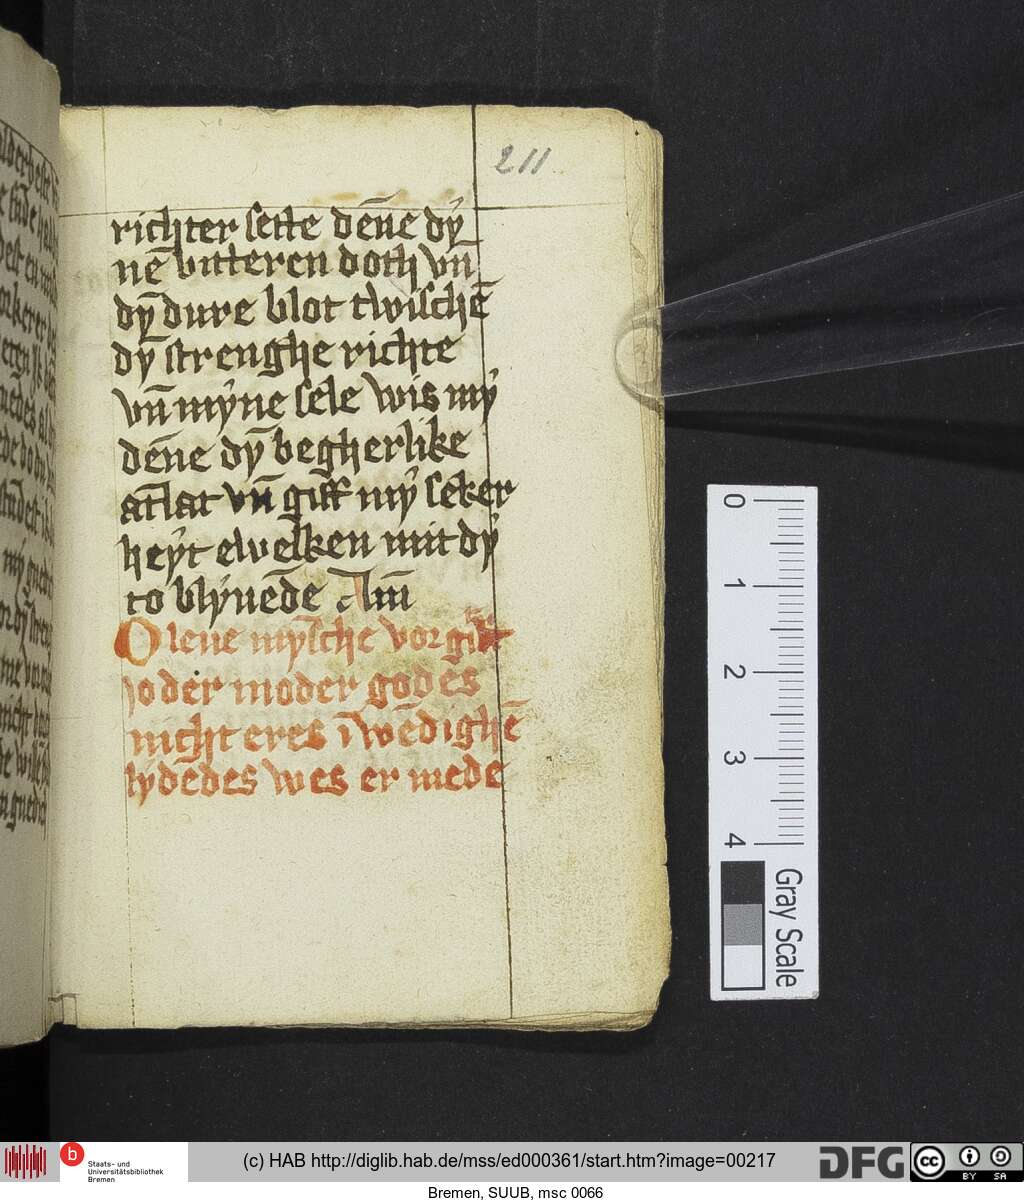 211
richter sette dēne dȳ
nē bitteren doth vn̄
dȳ dure blot twischē
dȳ strenghe richte
vn̄ mẏne sele wis mẏ
dēne dȳ begherlike
at̄lat vn̄ giff mẏ seker
heẏt ewelken mit dẏ
to blẏuēde Am̄
O leue mȳsche vorgist
io der moder godes
nicht eres īwēdighē
lẏdēdes wes er mede
0 1 2 3 4
Gray Scale
b Staats- und
Universitätsbibliothek
Bremen
(c) HAB http://diglib.hab.de/mss/ed000361/start.htm?image=00217
DFG
cc BY SA
Bremen, SUUB, msc 0066